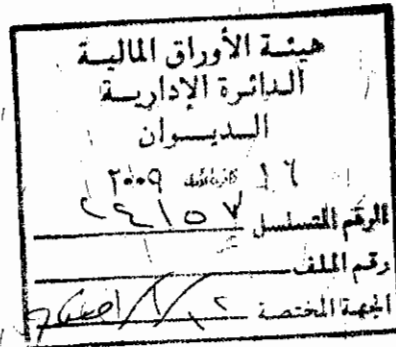 هيئة الأوراق المالية
الدائرة الإدارية
الديوان
١٦ كانون الأول ٢٠٠٩
الرقم المتسلسل ٢٤١٥٧
رقم الملف
الجهة المختصة